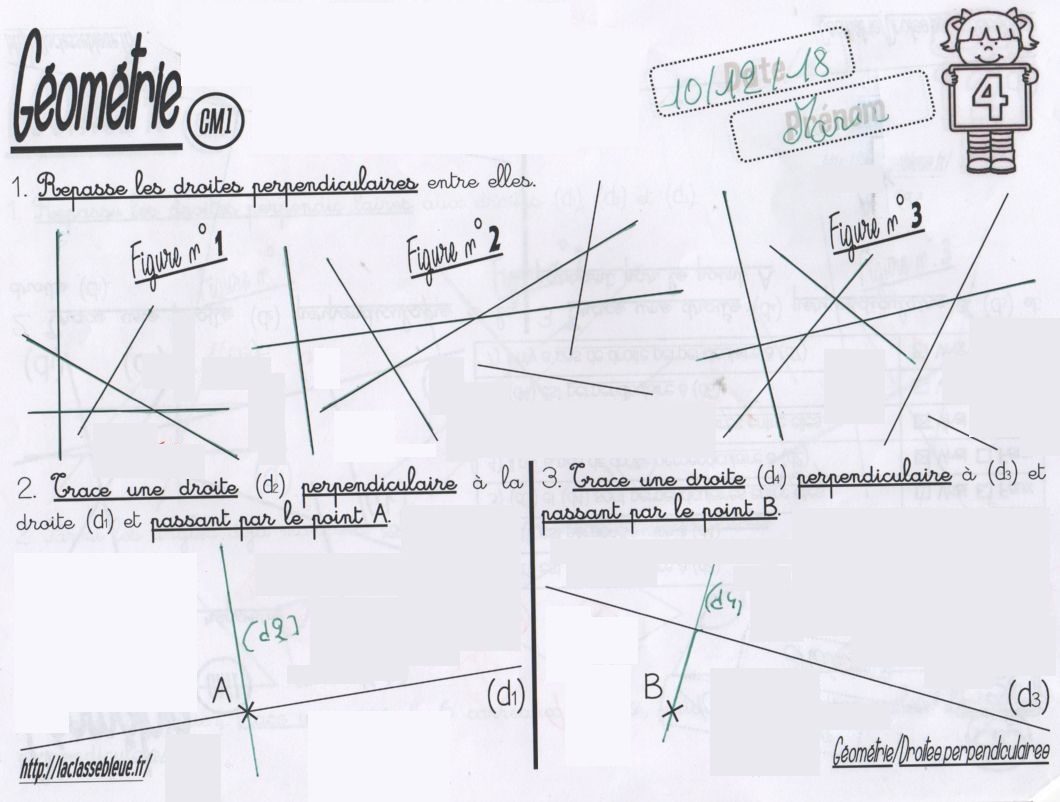 Géométrie
CM1
10/12/18
4
1. Repasse les droites perpendiculaires entre elles.
Figure n° 1
Figure n° 2
Figure n° 3
2. Trace une droite (d2) perpendiculaire à la
droite (d1) et passant par le point A.
(d2)
A
(d1)
3. Trace une droite (d4) perpendiculaire à (d) et
passant par le point B.
(d4)
B
(d3)
http://laclassebleue.fr/
Géométrie/Droites perpendiculaires